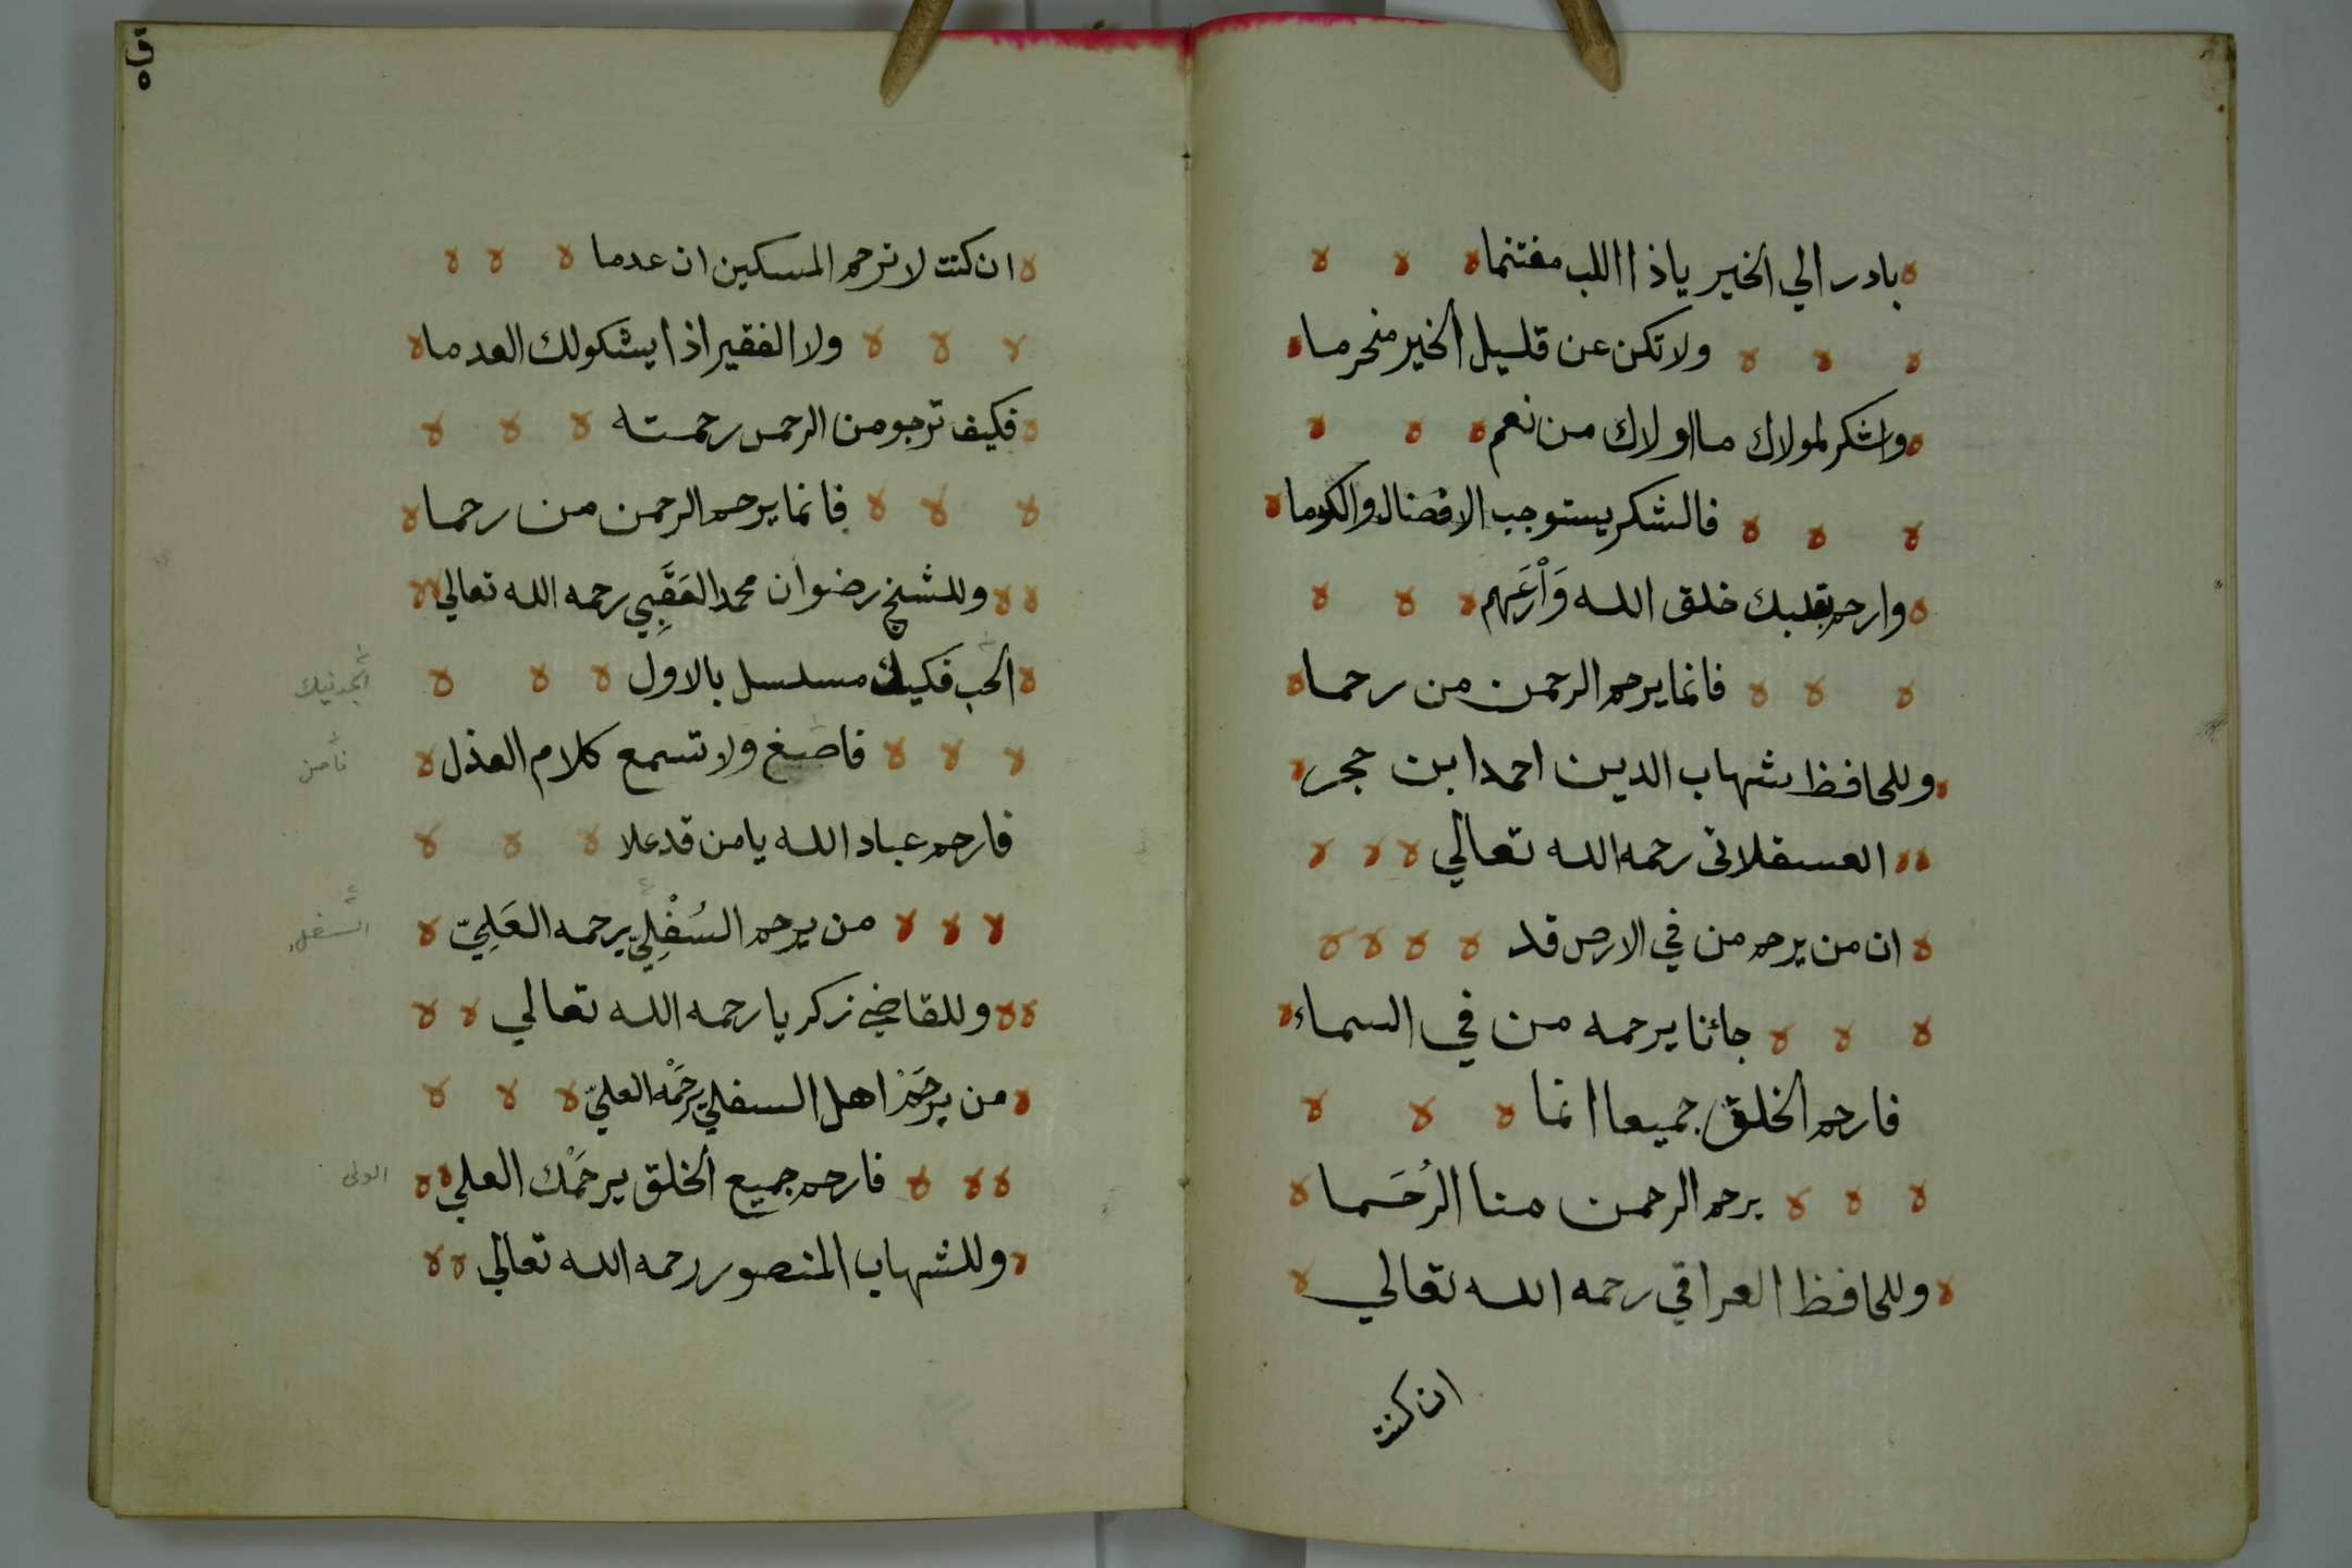 بادر الي الخير ياذا اللب مغتنما
ولا تكن عن قليل الخير منحرما
واشكر لمولاك ما اولاك من نعم
فالشكر يستوجب الافضال والكرما
وارحم بقلبك خلق الله وَأرعَهم
فانما يرحم الرحمن من رحما
وللحافظ شهاب الدين احمد ابن حجر
العسقلانى رحمه الله تعالي
ان من يرحم من في الارض قد
جائنا يرحمه من في السماء
فارحم الخلق جميعا انما
يرحم الرحمن منا الرُحَما
وللحافظ العراقي رحمه الله تعالي
ان كنت
ق
٥
ان كنت لا ترحم المسكين ان عدما
ولا الفقير اذا يشكو لك العدما
فكيف ترجو من الرحمن رحمته
فانما يرحم الرحمن من رحما
وللشيخ رضوان محمد العَقَبِي رحمه الله تعالي
الحب فيك مسلسل بالاول
فاصغ ولا تسمع كلام العذل
فارحم عباد الله يا من قد علا
من يرحم السُفْلِيّ يرحمه العَلِيّ
السفل
وللقاضي زكريا رحمه الله تعالي
من يرحَمْ اهل السفلي يرحَمْه العليّ
فارحم جميع الخلق يرحمْك العلي
الولى
وللشهاب المنصور رحمه الله تعالي